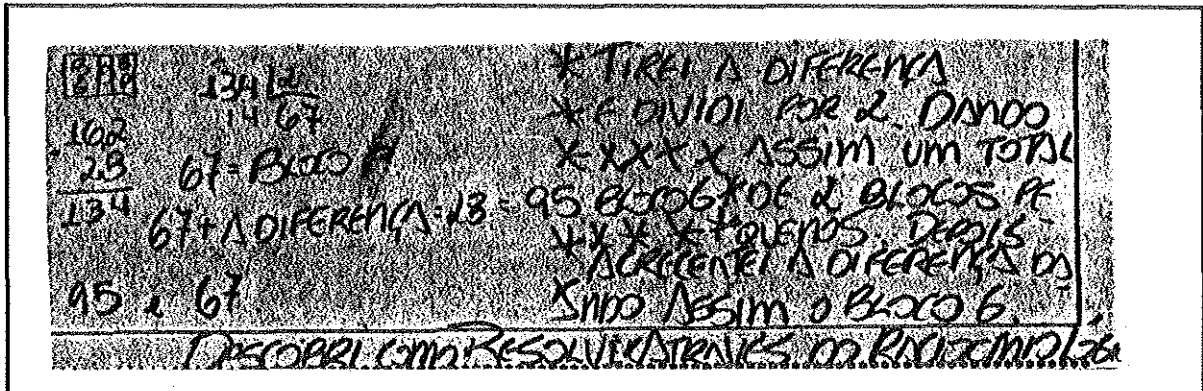 134 | 2
14 67
162
28
134
67 = BLOCO A.
67 + A DIFERENÇA = 28 = 95 BLOCO G
95 e 67
* TIREI A DIFERENÇA
* E DIVIDI POR 2. DANDO
X X X X X ASSIM UM TOTAL
* DE 2 BLOCOS PE
X X X X * QUENOS. DEPOIS
ACRECENTEI A DIFERENÇA DA
XNDO ASSIM O BLOCO G.
DESCOBRI COMO RESOLVER ATRAVÉS DO RACIOCINIO